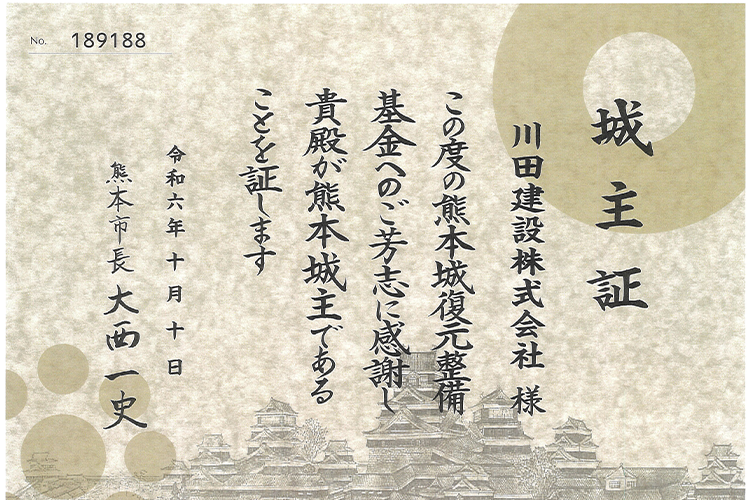 No. 189188
城主証
川田建設株式会社 様
この度の熊本城復元整備
基金へのご芳志に感謝し
貴殿が熊本城主である
ことを証します
令和六年十月十日
熊本市長 大西一史